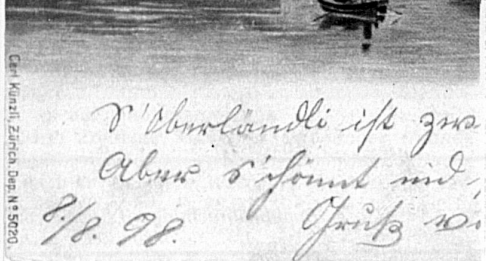 Carl Künzli, Zürich. Dep. Nº 5020.
S'Oberlandli ist zwa
Aber s'chönnt nid
8./8. 98. Gruß vi